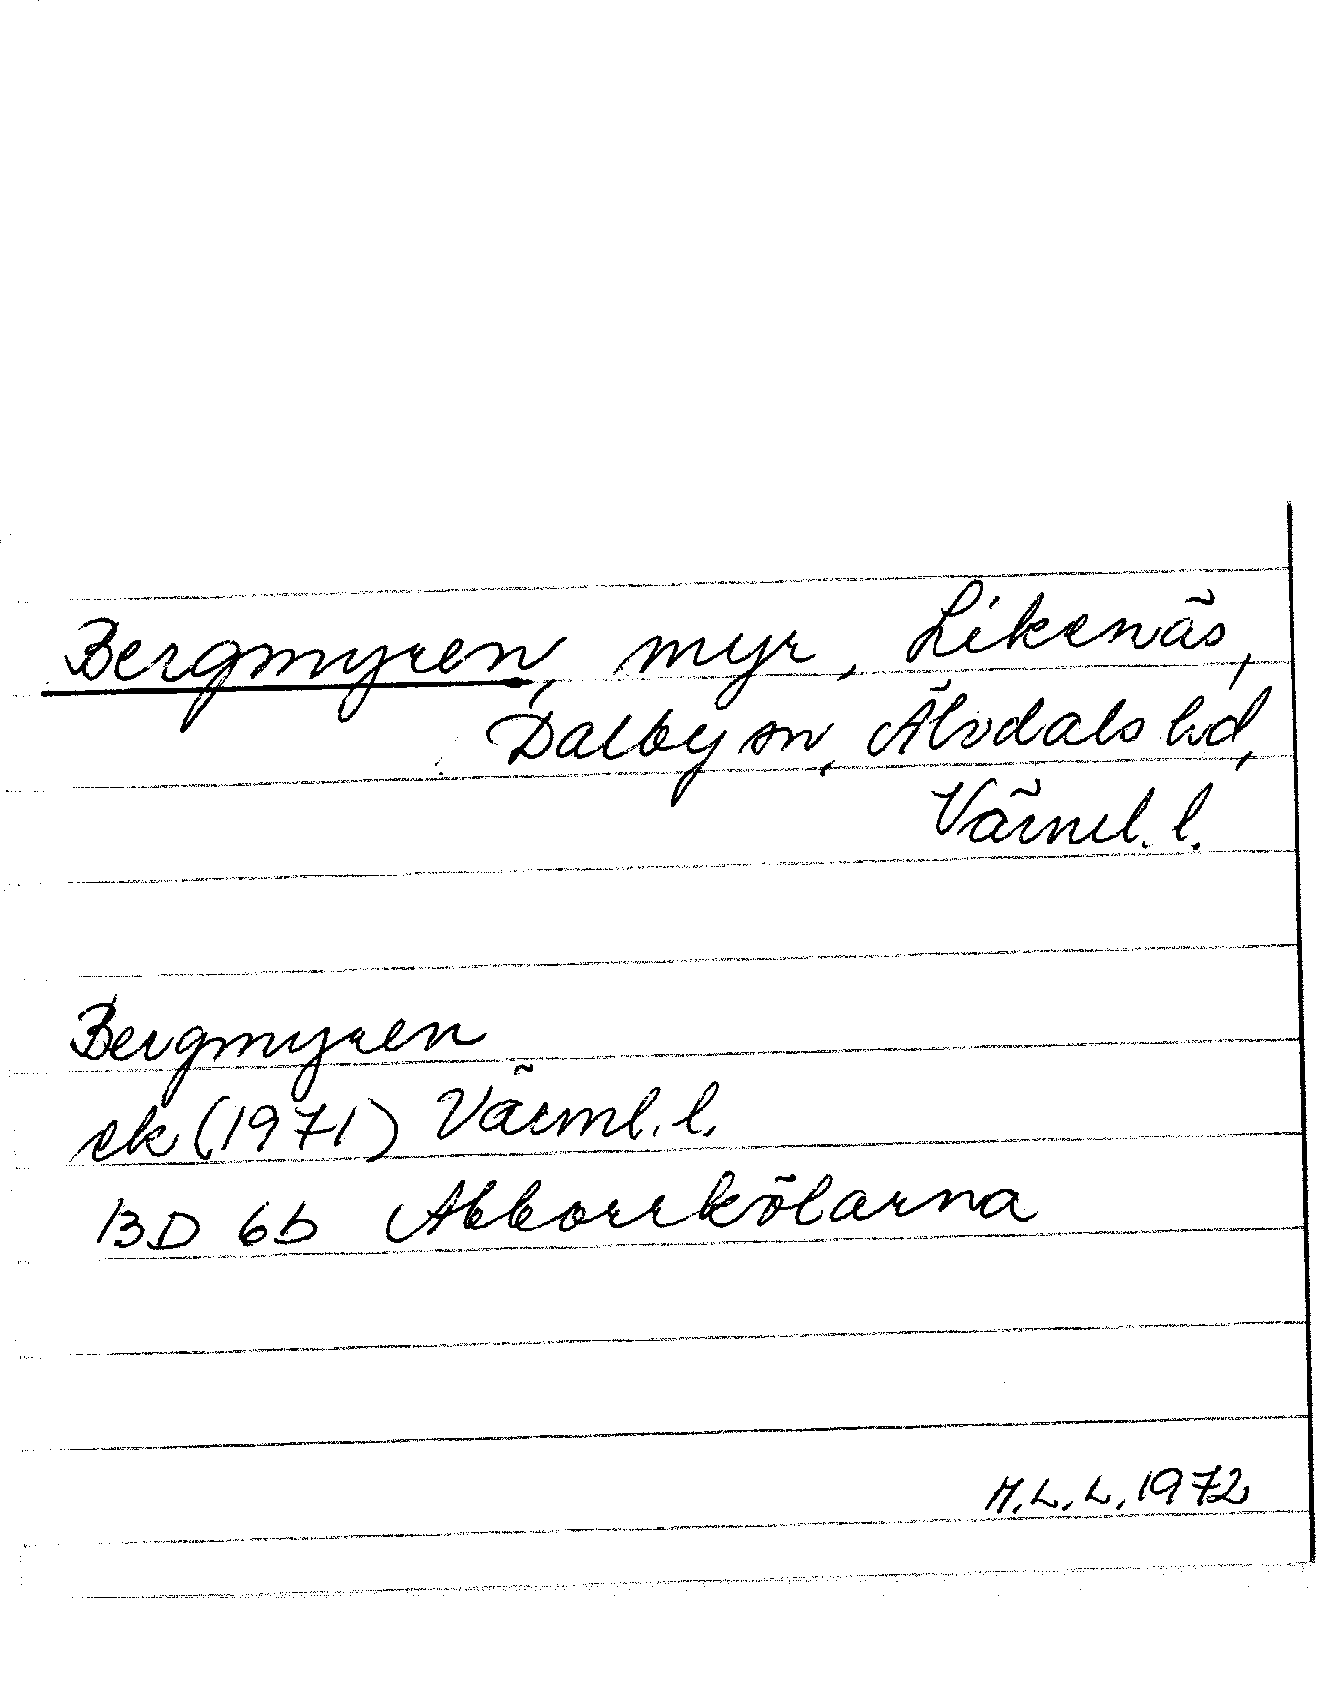 Bergmyren, myr, Likenäs,
Dalby sn, Älvdals hd,
Värml. l.
Bergmyren
ek (1971) Värml. l.
13D 6b Abborrkölarna
M.L.L. 1972